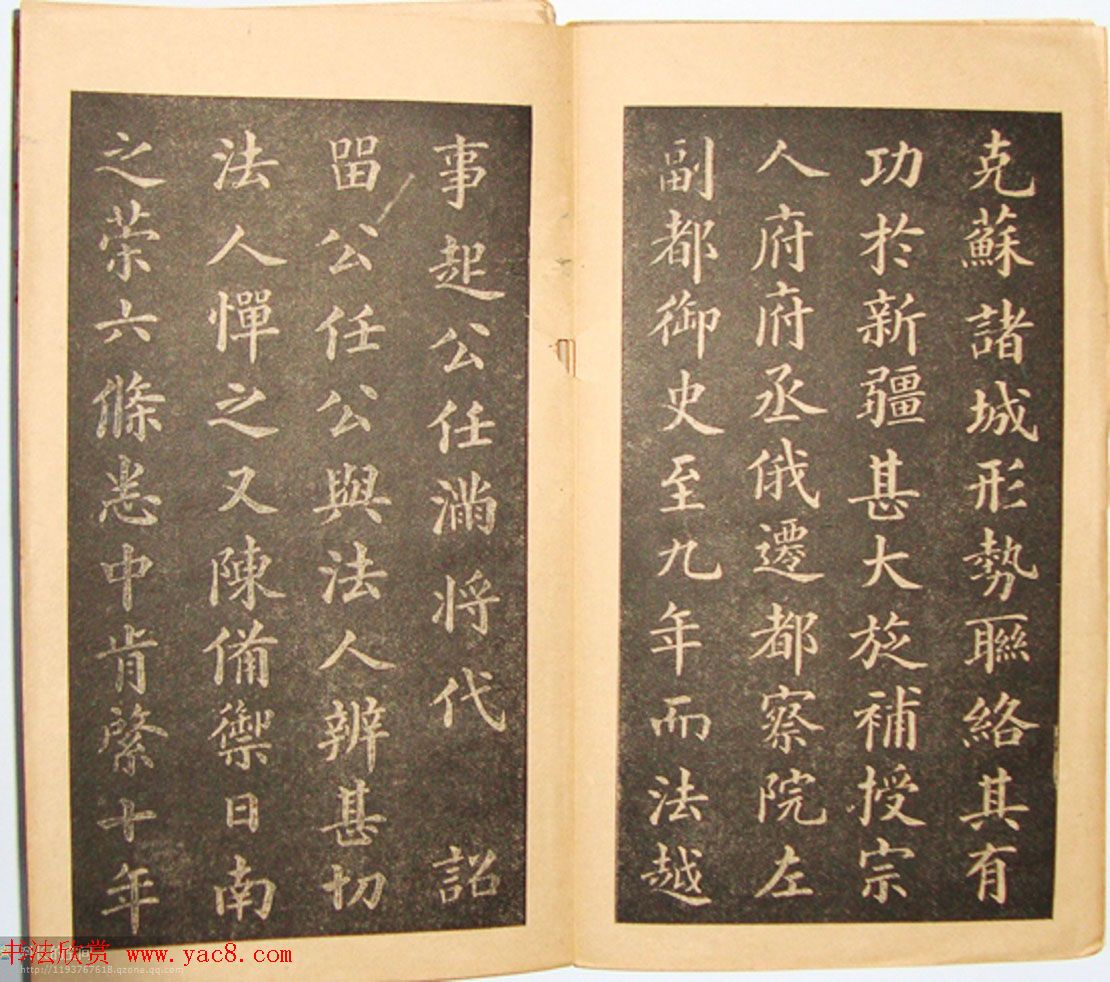 克蘇諸城形勢聯絡其有
功於新疆甚大旋補授宗
人府府丞俄遷都察院左
副都御史至九年而法越
事起公任滿將代 詔
留公任公與法人辨甚切
法人憚之又陳備禦日南
之策六條悉中肯綮十年
书法欣赏 www.yac8.com
http://1193767618.qzone.qq.com